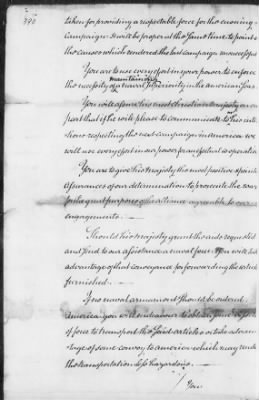 390
taken for providing a respectable force for the ensuing
campaign. It will be proper at the same time to point
the causes which rendered the last campaign unsuccessful
You are to use every effort in your power to enforce
the necessity of maintaining a naval superiority in the american Seas
You will assure his most Christian majesty on
part that if he will please to communicate to us his inten
tions respecting the next campaign in America we
will use every effort in our power for an effectual co operatio
You are to give his majesty the most positive & pointed
assurances of our determination to prosecute the war
for the great purposes of the alliance agreeable to our
engagements.
Should his majesty grant the aids requested
and send to our assistance a naval force you will take
advantage of that conveyance for forwarding the articles
furnished.
If no naval armament should be ordered
America you will endeavour to obtain some
of force to transport the said articles or take advan
tage of some convoy to America which may render
the transportation less hazardous.
You